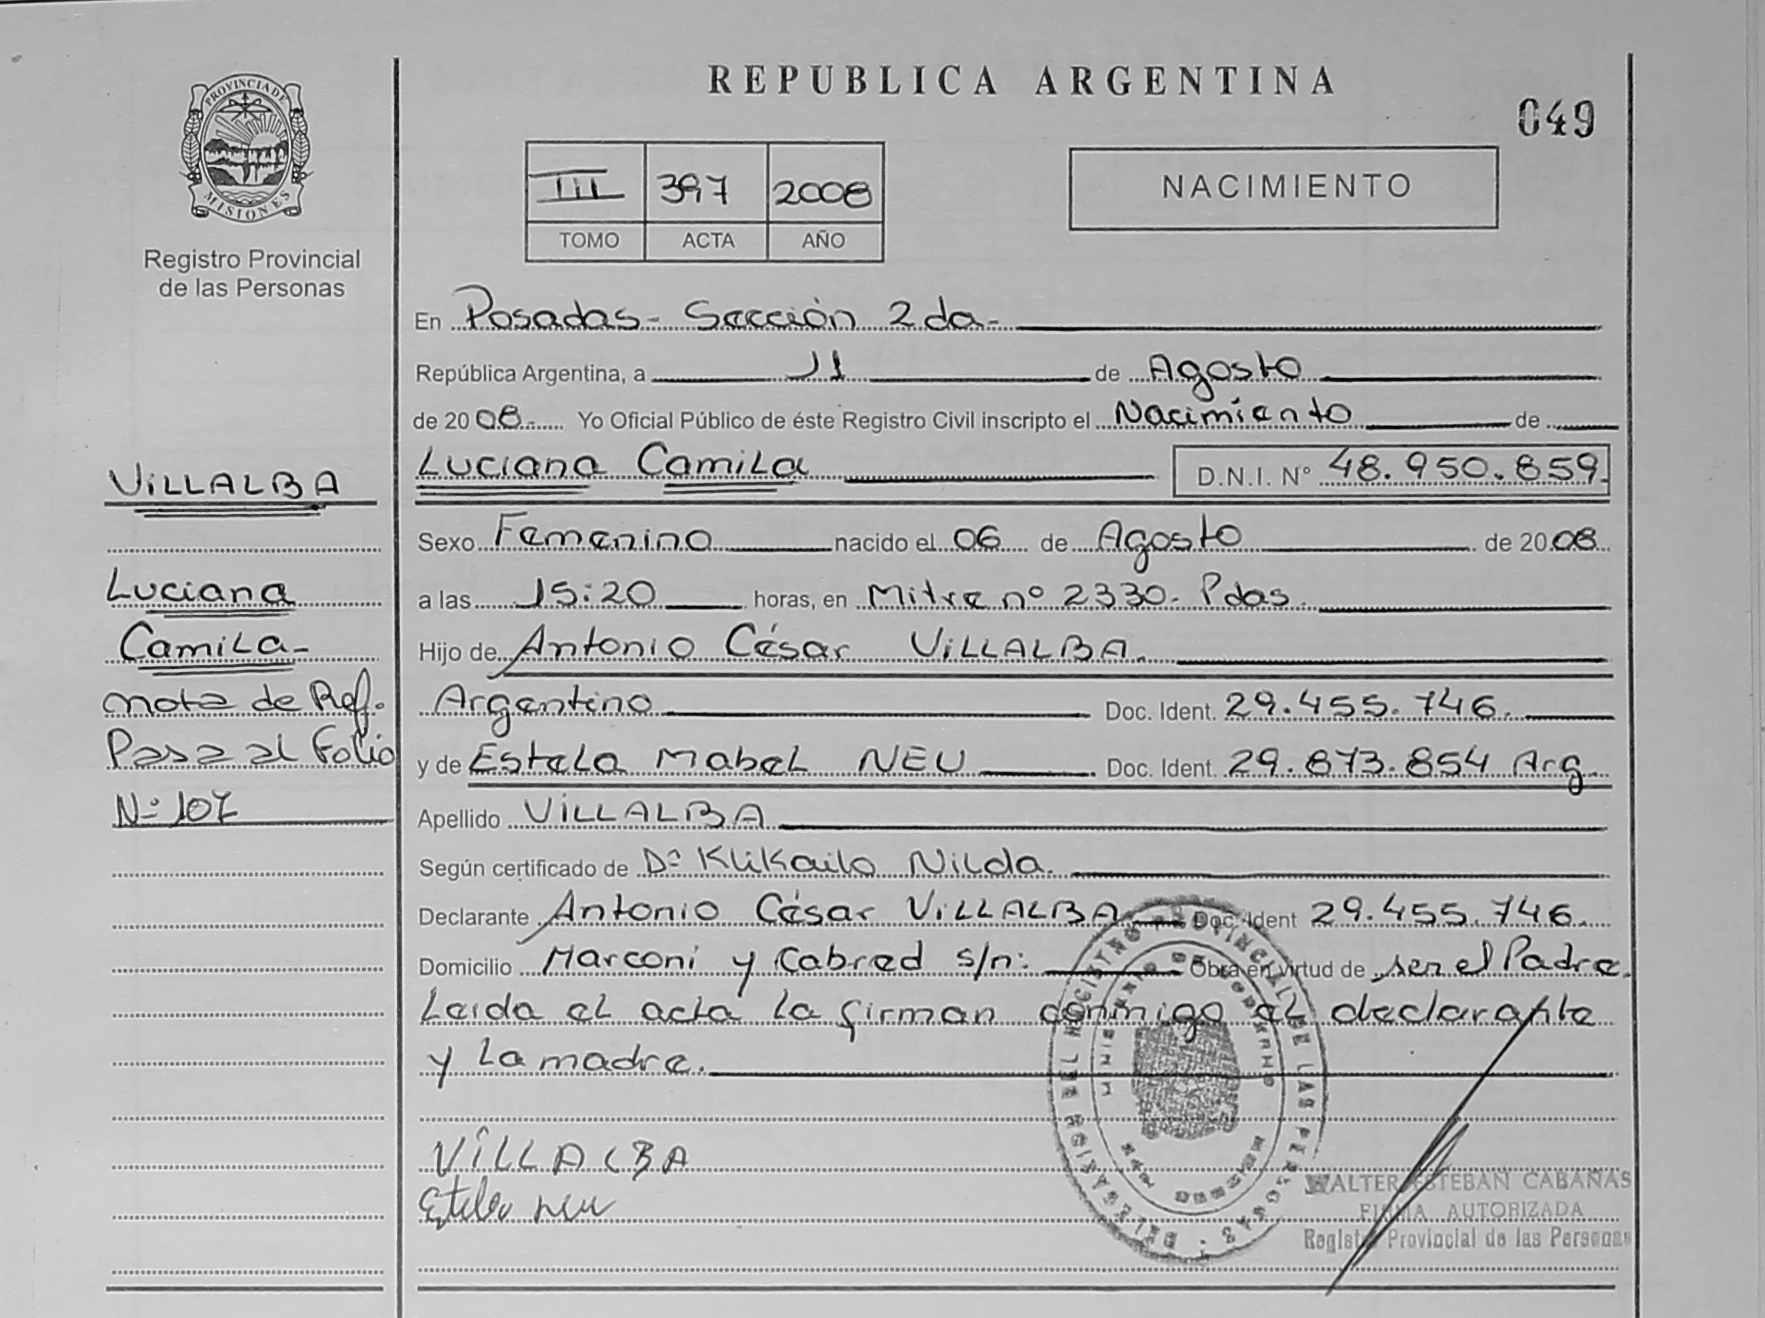 REPUBLICA ARGENTINA
049
PROVINCIA DE MISIONES
Registro Provincial
de las Personas
III 397 2008
TOMO ACTA AÑO
NACIMIENTO
En Posadas- Sección 2da-
República Argentina, a 11 de Agosto
de 2008 Yo Oficial Público de éste Registro Civil inscripto el Nacimiento de
Luciana Camila D.N.I. N° 48.950.859.
Sexo Femenino nacido el 06 de Agosto de 2008
a las 15:20 horas, en Mitre nº 2330- Pdas.
Hijo de Antonio César VILLALBA.
Argentino Doc. Ident. 29.455.746.
y de Estela Mabel NEU Doc. Ident. 29.873.854 Arg.
Apellido VILLALBA
Según certificado de Dª Klikailo Nilda.
Declarante Antonio César VILLALBA Doc. Ident 29.455.746.
Domicilio Marconi y Cabred s/n: Obra en virtud de ser el Padre.
Leida el acta la firman conmigo el declarante
y la madre.
VILLALBA
Luciana
Camila-
nota de Ref.
Pasa al Folio
Nº 107
VILLALBA
Estela neu
REGISTRO PROVINCIAL DE LAS PERSONAS
MINISTERIO DE GOBIERNO
WALTER ESTEBAN CABAÑAS
FIRMA AUTORIZADA
Registro Provincial de las Personas